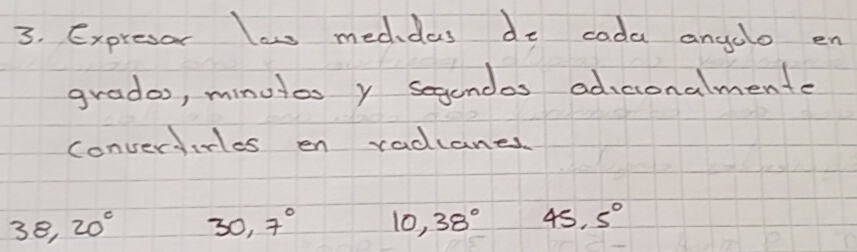 3. Expresar las medidas de cada angulo en
grados, minutos y segundos adicionalmente
convertirlos en radianes.
38,20° 30,7° 10,38° 45,5°